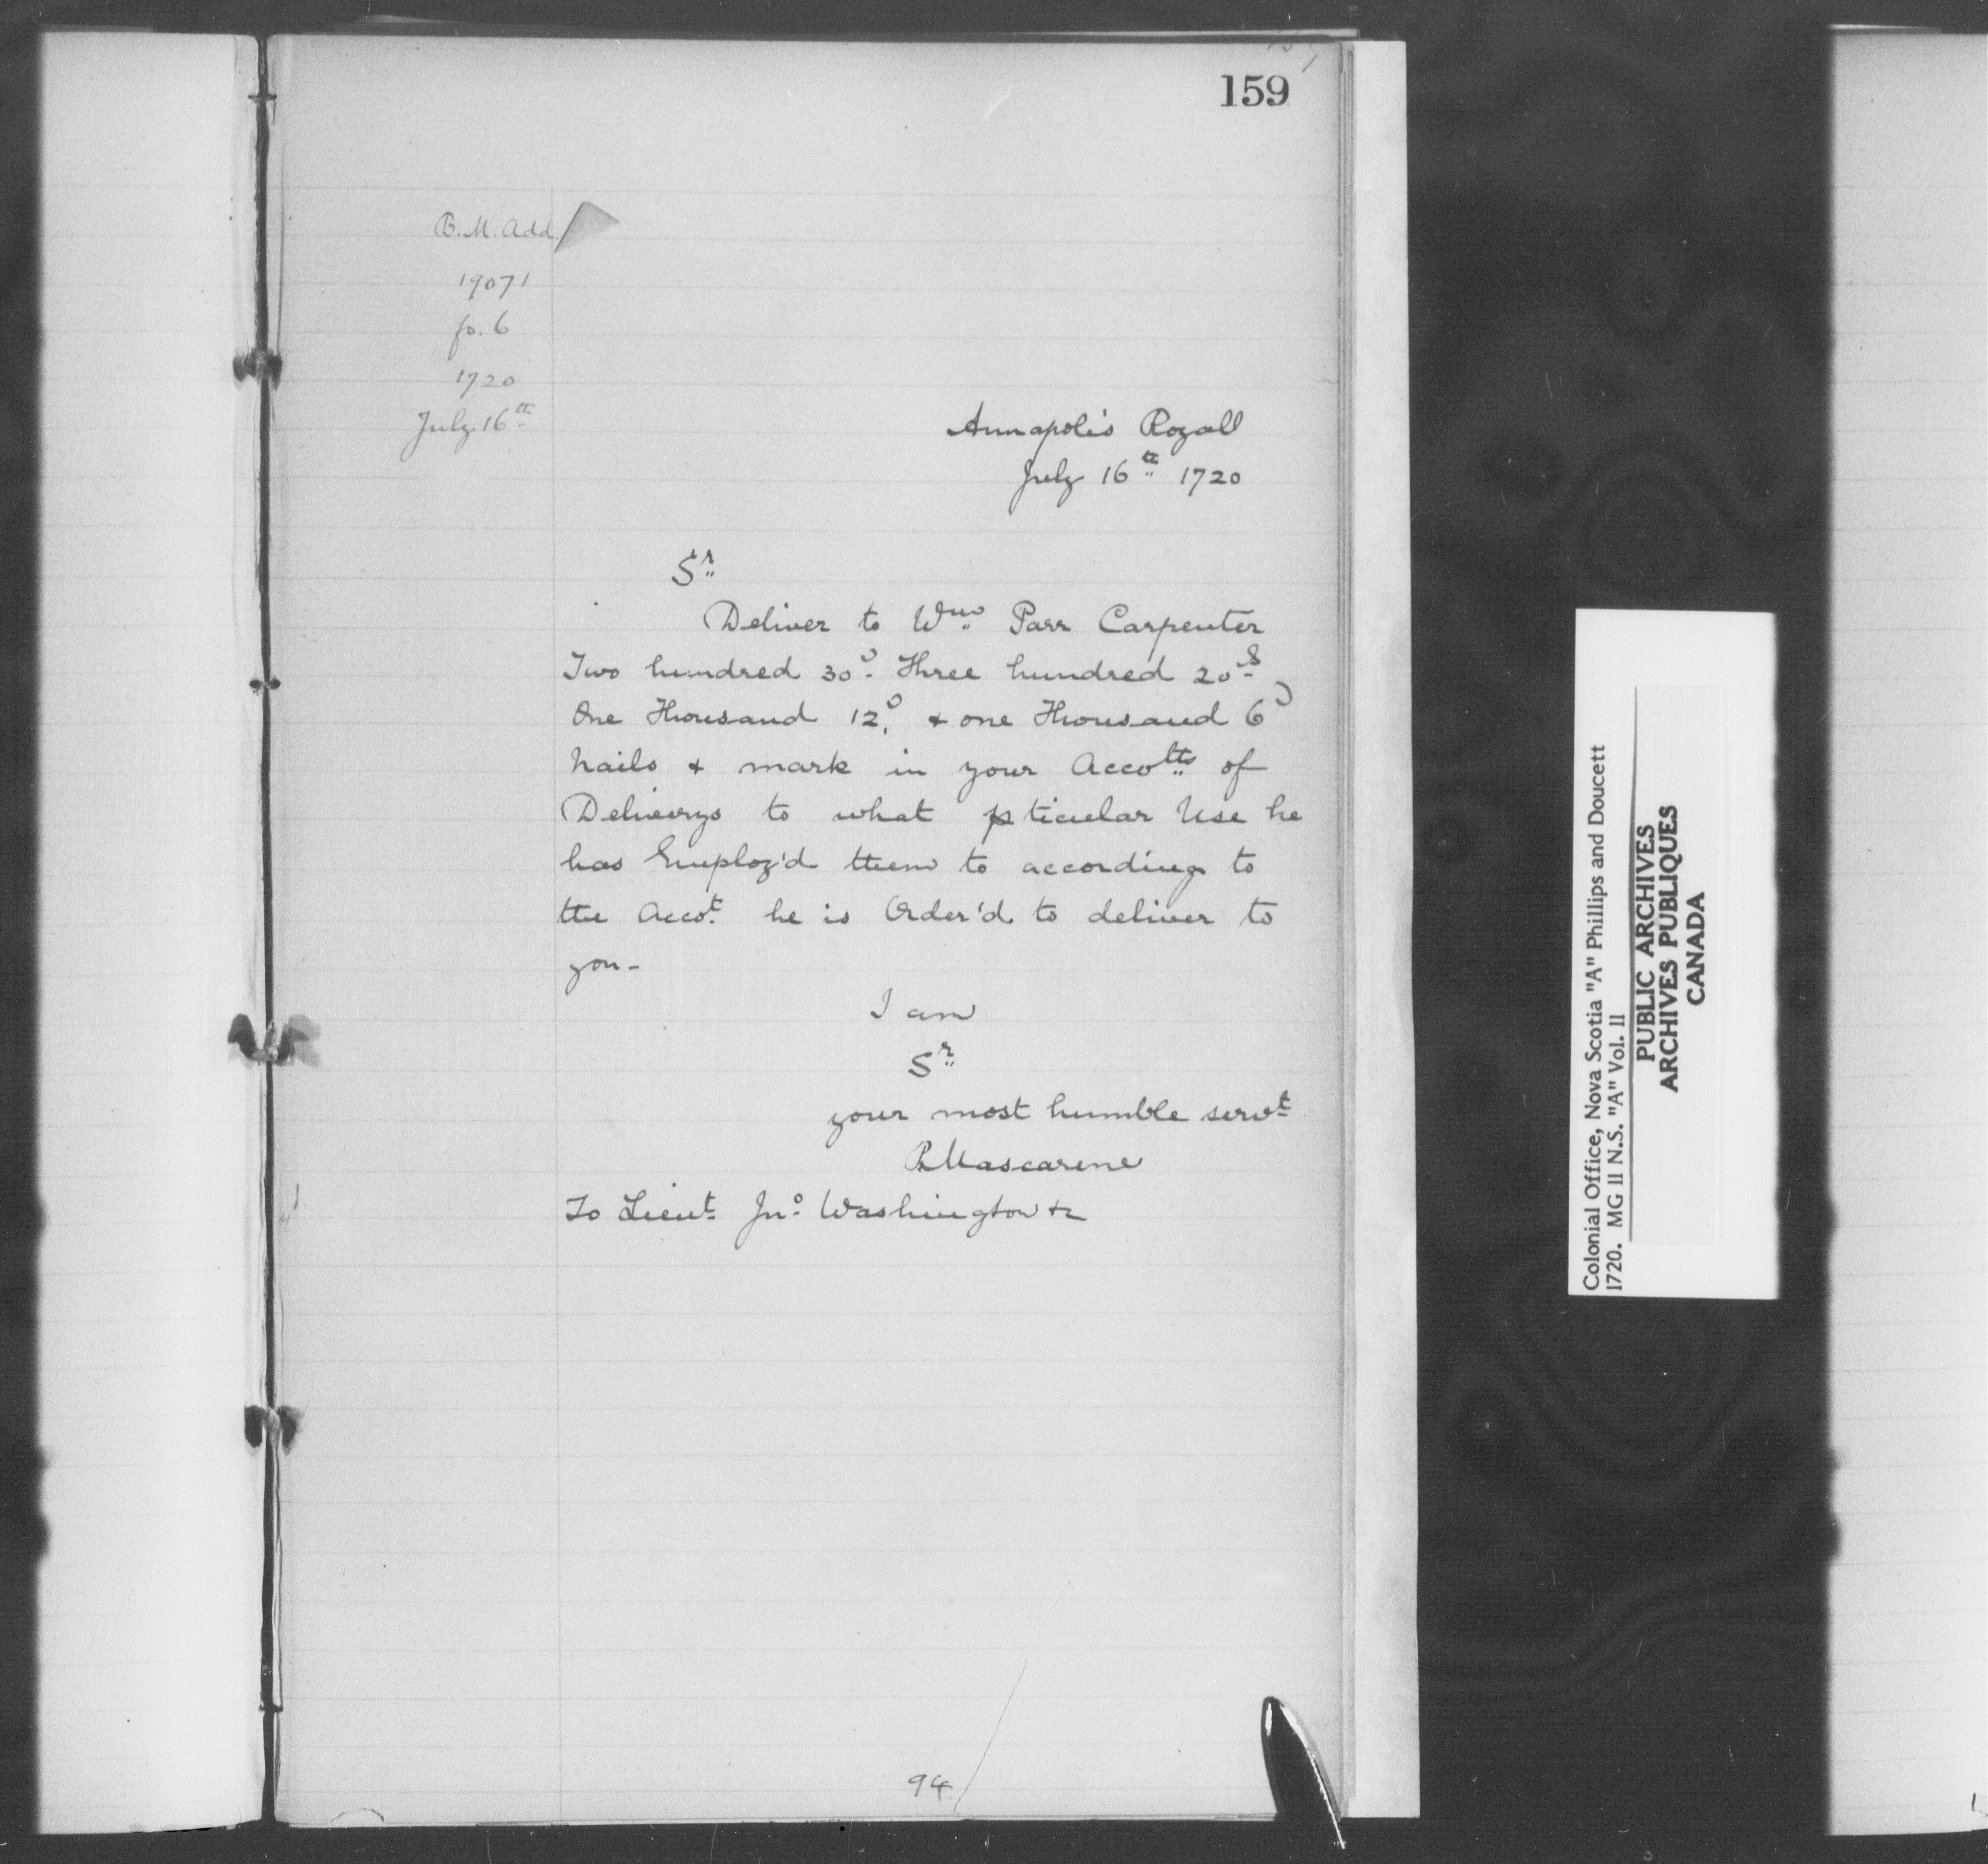 159
B.M. Add
19071
fo. 6
1720
July 16th
Annapolis Royall
July 16th 1720
Sr
Deliver to Wm Parr Carpenter
Two hundred 30d Three hundred 20d
One Thousand 12d & one Thousand 6d
Nails & mark in your Accotts of
Deliverys to what pticular Use he
has Employ'd them to according to
the Accot he is Order'd to deliver to
you -
I am
Sr
your most humble servt
P. Mascarene
To Lieut Jno Washington &c
94
Colonial Office, Nova Scotia "A" Phillips and Doucett
1720. MG 11 N.S. "A" Vol. 11
PUBLIC ARCHIVES
ARCHIVES PUBLIQUES
CANADA